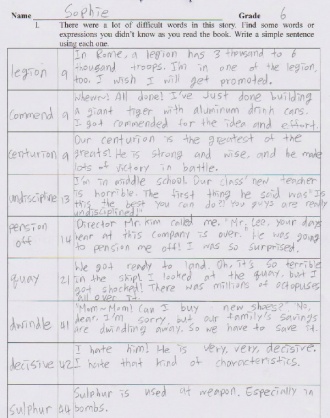 Name Sophie Grade 6
1. There were a lot of difficult words in this story. Find some words or
expressions you didn't know as you read the book. Write a simple sentence
using each one.
legion 9 In Rome, a legion has 3 thousand to 6
thousand troops. I'm in one of the legion,
too. I wish I will get promoted.
commend 9 Whew~! All done! I've Just done building
a giant tiger with aluminum drink cans.
I got commended for the idea and effort.
centurion 9 Our centurion is the greatest of the
greats! He is strong and wise, and he make
lots of victory in battle.
undiscipline 13 I'm in middle school. Our class' new teacher
is horrible. The first thing he said was "Is
this the best you can do?! You guys are really
undisciplined!"
pension off 14 Director Mr. Kim called me. "Mr. Leo, your days
here at this company is over. He was going
to pension me off! I was so surprised.
quay 21 We got ready to land. Oh, it's so terrible
in the ship! I looked at the quay, but I
got shocked! There was millions of octopuses
all over it.
dwindle 31 "Mom~Mom! Can I buy new shoes?" "No,
dear. I'm sorry, but our family's savings
are dwindling away. So we have to save it.
decisive 42 I hate him! He is very, very, decisive.
I hate that kind of characteristics.
sulphur 54 Sulphur is used at weapon. Especially in
bombs.